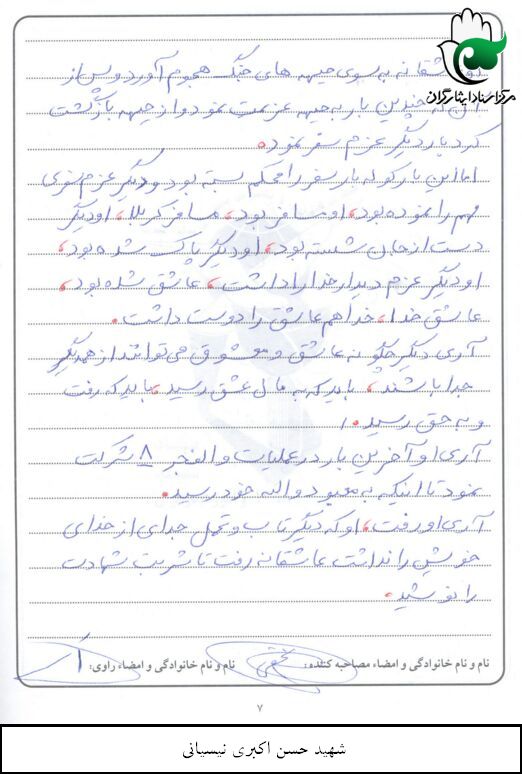 مرکز اسناد ایثارگران
عاشقانه به سوی جبهه های جنگ هجوم آورد و پس از
آن که چندین بار به جبهه عزیمت نمود و از جبهه بازگشت
کرد بار دیگر عزم سفر نمود.
اما این بار کوله بار سفر را محکم بسته بود و دیگر عزم سفری
مهم را نموده بود، او مسافر بود، مسافر کربلا، او دیگر
دست از جان شسته بود، او دیگر پاک شده بود،
او دیگر عزم دیدار خدا را داشت، عاشق شده بود،
عاشق خدا، خدا هم عاشق را دوست داشت.
آری دیگر چگونه عاشق و معشوق می توانند از همدیگر
جدا باشند، باید که به مال عشق رسید، باید که رفت
و به حق رسید.
آری او آخرین بار در عملیات والفجر ۸ شرکت
نمود تا اینکه به معبود و اله خود رسید.
آری او رفت، او که دیگر تاب و تحمل جدای از خدای
خویش را نداشت عاشقانه رفت تا شربت شهادت
را نوشید.
نام و نام خانوادگی و امضاء مصاحبه کننده: نام و نام خانوادگی و امضاء راوی:
۷
شهید حسن اکبری نیسیانی